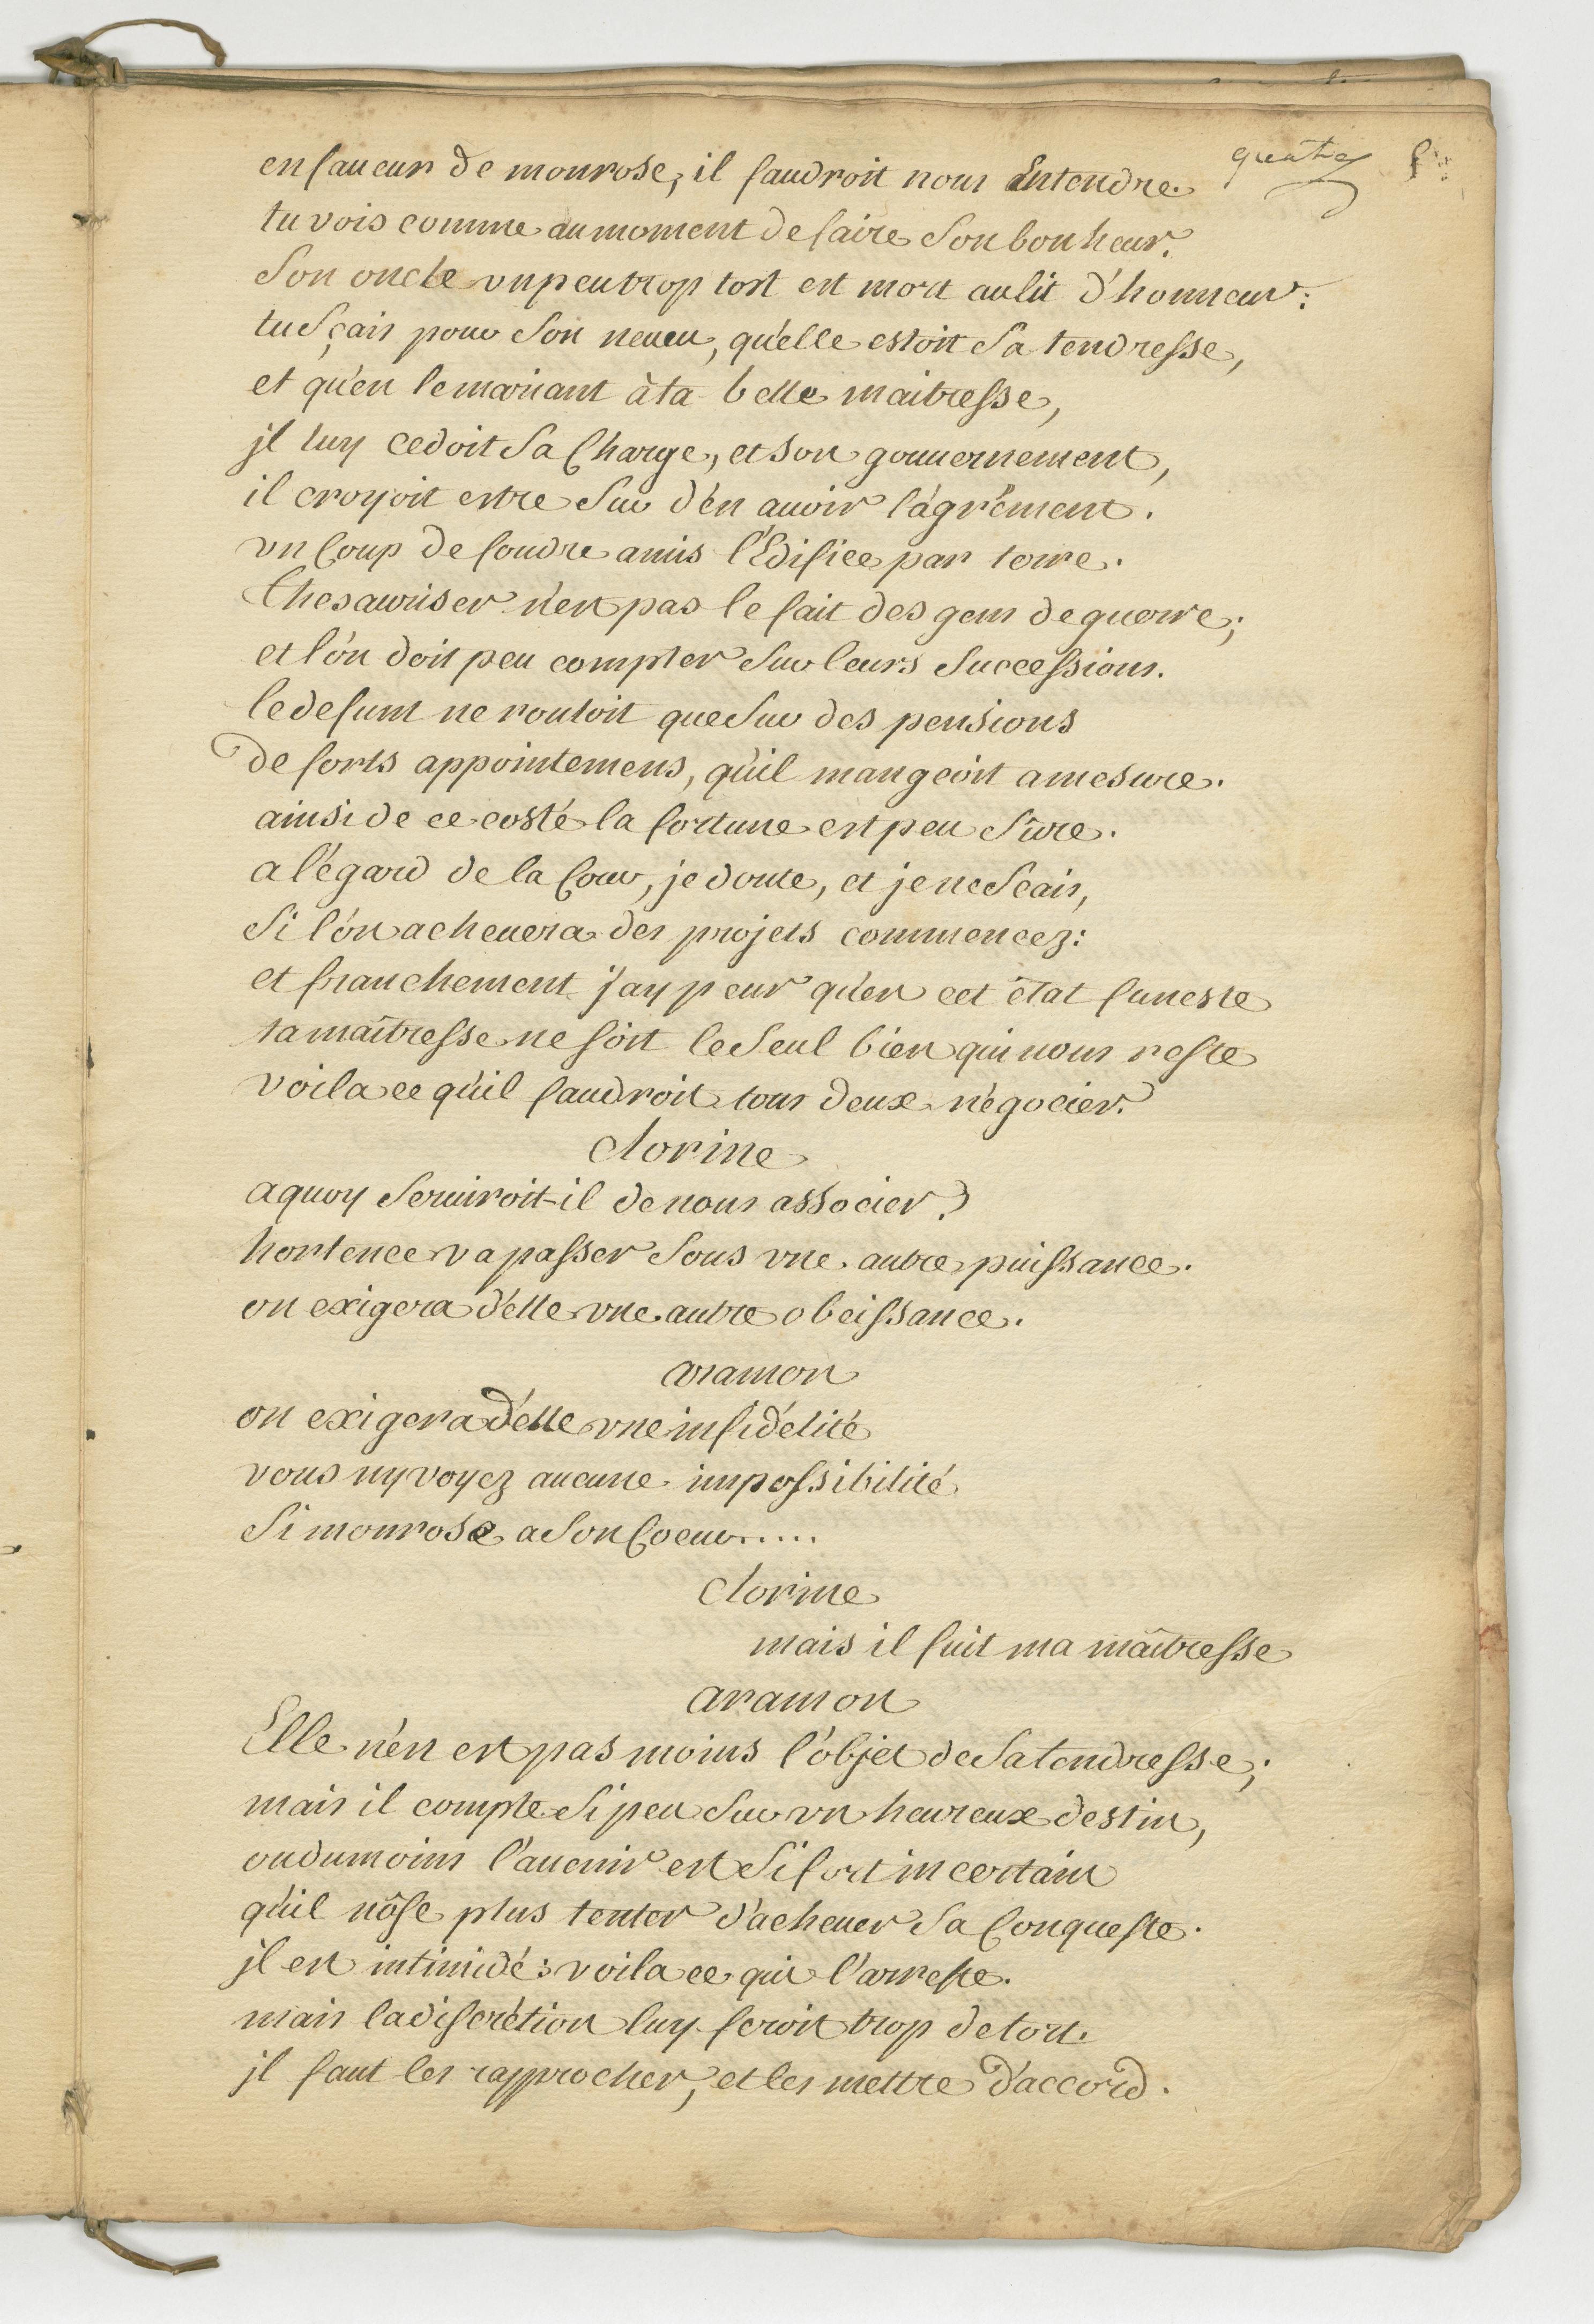 quatre
en faueur de monrose, il faudroit nous Entendre.
tu vois comme au moment de faire Son bonheur.
Son oncle vn peu trop tost est mort au lit d'honneur:
tu Sçais pour Son neueu, qu'elle estoit Sa tendresse,
et qu'en le mariant à ta belle maitresse,
jl luy cedoit Sa Charge, et son gouuernement,
il croyoit estre Sur d'en auoir l'agrément.
vn Coup de foudre a mis l'Edifice par terre.
Thesauriser n'est pas le fait des gens de guerre;
et l'on doit peu compter Sur leurs Successions.
le defunt ne rouloit que Sur des pensions
De forts appointemens, qu'il mangeoit a mesure.
ainsi de ce costé la fortune est peu Sûre.
a l'égard de la Cour, je doute, et je ne Scais,
Si l'on acheuera des projets commencez:
et franchement j'ay peur qu'en cet état funeste
ta maîtresse ne soit le Seul bien qui nous reste
voila ce qu'il faudroit tous deux négocier.
Clorine
a quoy Seruiroit-il de nous associer?
hortence va passer Sous vne autre puissance.
on exigera d'elle vne autre obeissance.
aramon
on exigera d'elle vne infidélité
vous n'y voyez aucune impossibilité
Si monrose a Son Coeur.....
Clorine
mais il fuit ma maîtresse
aramon
Elle n'en est pas moins l'objet de Sa tendresse;
mais il compte Si peu Sur vn heureux destin,
ou du moins l'auenir est Si fort incertain
qu'il n'ôse plus tenter d'acheuer Sa Conqueste.
jl est intimidé: voila ce qui l'arreste.
mais la discrétion luy feroit trop de tort.
jl faut les rapprocher, et les mettre d'accord.